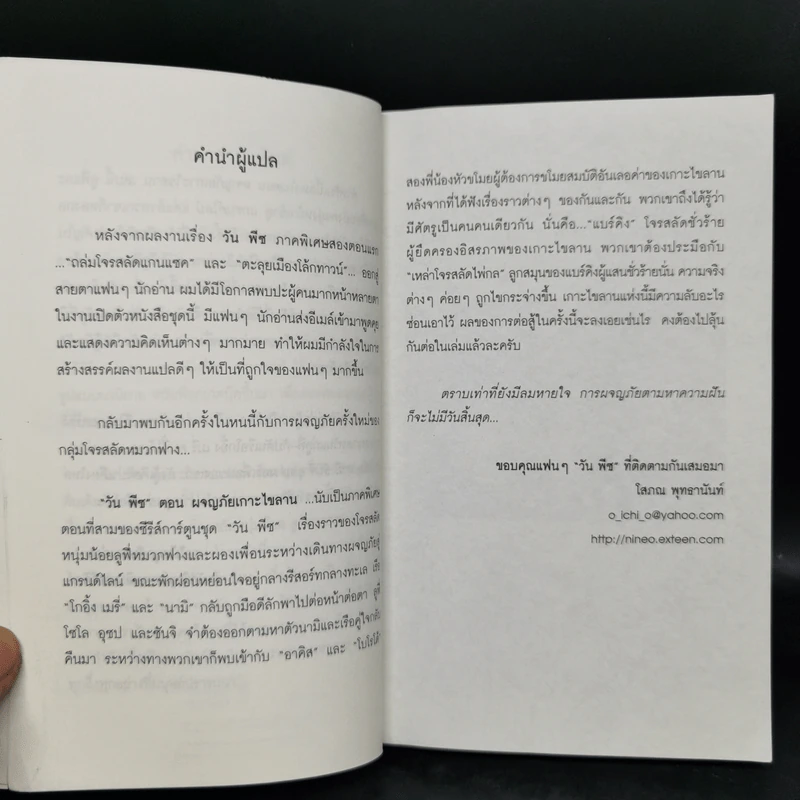 คำนำผู้แปล
หลังจากผลงานเรื่อง วัน พีซ ภาคพิเศษสองตอนแรก
..."ถล่มโจรสลัดแกนแซค" และ "ตะลุยเมืองโล้กทาวน์"... ออกสู่
สายตาแฟนๆ นักอ่าน ผมได้มีโอกาสพบปะผู้คนมากหน้าหลายตา
ในงานเปิดตัวหนังสือชุดนี้ มีแฟนๆ นักอ่านส่งอีเมล์เข้ามาพูดคุย
และแสดงความคิดเห็นต่างๆ มากมาย ทำให้ผมมีกำลังใจในการ
สร้างสรรค์ผลงานแปลดีๆ ให้เป็นที่ถูกใจของแฟนๆ มากขึ้น
กลับมาพบกันอีกครั้งในหนนี้กับการผจญภัยครั้งใหม่ของ
กลุ่มโจรสลัดหมวกฟาง...
"วัน พีซ" ตอน ผจญภัยเกาะไขลาน ...นับเป็นภาคพิเศษ
ตอนที่สามของซีรีส์การ์ตูนชุด "วัน พีซ" เรื่องราวของโจรสลัด
หนุ่มน้อยลูฟี่หมวกฟางและผองเพื่อนระหว่างเดินทางผจญภัยสู่
แกรนด์ไลน์ ขณะพักผ่อนหย่อนใจอยู่กลางรีสอร์ทกลางทะเล เรือ
"โกอิ้ง เมรี่" และ "นามิ" กลับถูกมือดีลักพาไปต่อหน้าต่อตา ลูฟี่
โซโล อุซป และซันจิ จำต้องออกตามหาตัวนามิและเรือคู่ใจกลับ
คืนมา ระหว่างทางพวกเขาก็พบเข้ากับ "อาคิส" และ "โบโรโด้"
สองพี่น้องหัวขโมยผู้ต้องการขโมยสมบัติอันเลอค่าของเกาะไขลาน
หลังจากที่ได้ฟังเรื่องราวต่างๆ ของกันและกัน พวกเขาถึงได้รู้ว่า
มีศัตรูเป็นคนคนเดียวกัน นั่นคือ..."แบร์คิง" โจรสลัดชั่วร้าย
ผู้ยึดครองอิสรภาพของเกาะไขลาน พวกเขาต้องประมือกับ
"เหล่าโจรสลัดไพ่กล" ลูกสมุนของแบร์คิงผู้แสนชั่วร้ายนั่น ความจริง
ต่างๆ ค่อยๆ ถูกไขกระจ่างขึ้น เกาะไขลานแห่งนี้มีความลับอะไร
ซ่อนเอาไว้ ผลของการต่อสู้ในครั้งนี้จะลงเอยเช่นไร คงต้องไปลุ้น
กันต่อในเล่มแล้วละครับ
ตราบเท่าที่ยังมีลมหายใจ การผจญภัยตามหาความฝัน
ก็จะไม่มีวันสิ้นสุด...
ขอบคุณแฟนๆ "วัน พีซ" ที่ติดตามกันเสมอมา
โสภณ พุทธานันท์
o_ichi_o@yahoo.com
http://nineo.exteen.com